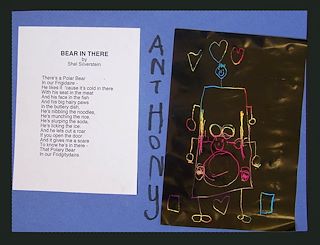 BEAR IN THERE
by
Shel Silverstein
There's a Polar Bear
In our Fridgidaire -
He likes it 'cause it's cold in there
With his seat in the meat
And his face in the fish
And his big hairy paws
In the buttery dish,
He's nibbling the noodles,
He's munching the rice,
He's slurping the soda,
He's licking the ice.
And he lets out a roar
If you open the door.
And it gives me a scare
To know he's in there -
That Polary Bear
In our Fridgitydaire.
ANTHONY